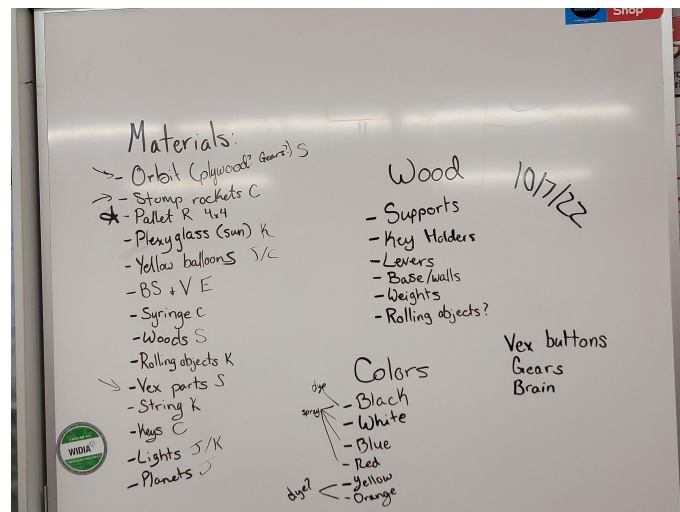 Shop
Materials:
- Orbit (plywood? Gears?) S
- Stomp rockets C
- Pallet R 4x4
- Plexyglass (sun) K
- Yellow balloons J/C
- BS + V E
- Syringe C
- Woods S
- Rolling objects K
- Vex parts S
- String K
- Keys C
- Lights J/K
- Planets J
WIDIA
Wood
- Supports
- Key Holders
- Levers
- Base/walls
- Weights
- Rolling objects?
10/7/22
Colors
dye
spray
- Black
- White
- Blue
- Red
dye?
- Yellow
- Orange
Vex buttons
Gears
Brain